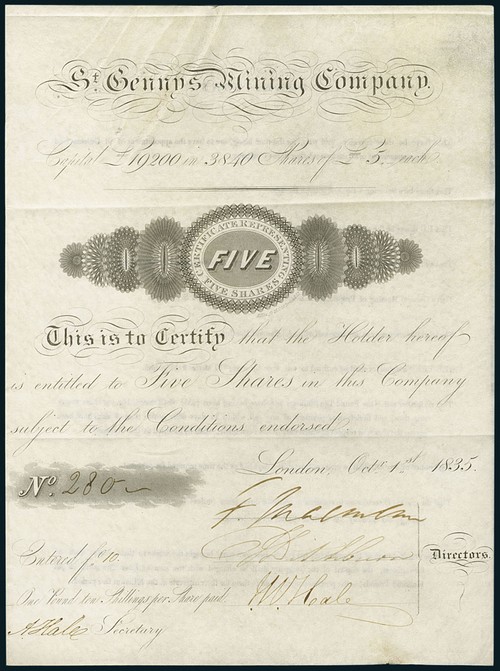 St. Gennys Mining Company.
Capital £19200 in 3840 Shares of £5. each
CERTIFICATE REPRESENTING
FIVE
FIVE SHARES
This is to Certify that the Holder hereof
is entitled to Five Shares in this Company
subject to the Conditions endorsed.
London, Octr. 1st. 1835.
No. 280
Directors.
Entered fo 10.
One Pound ten Shillings per Share paid
W. Hale
A Hale Secretary